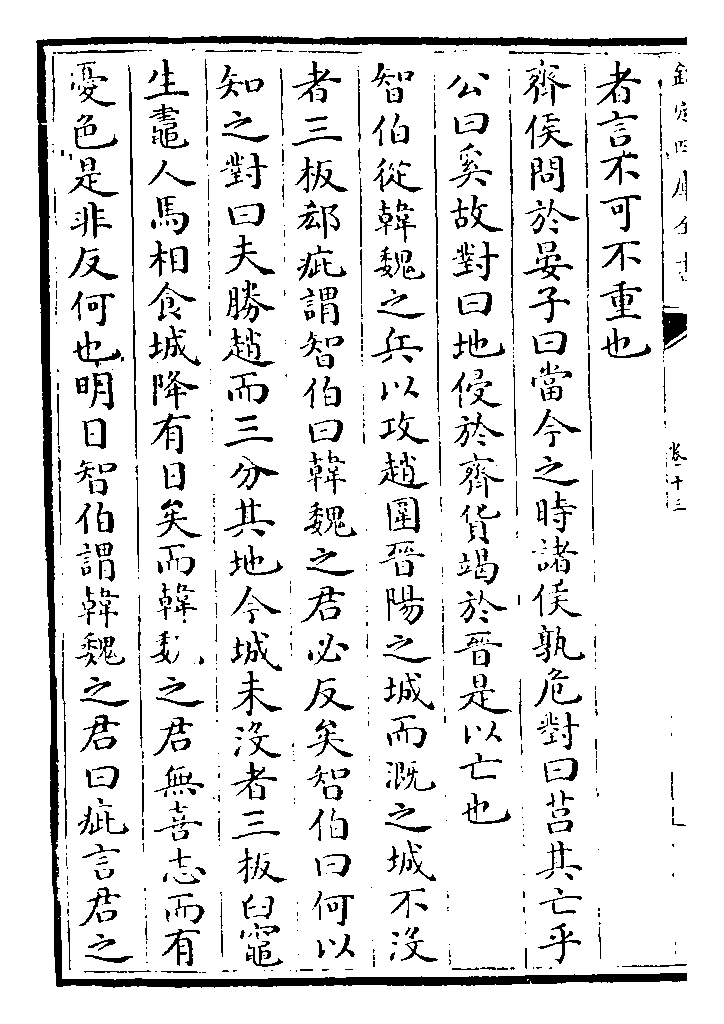 欽定四庫全書
卷十三
者言不可不重也
齊侯問於晏子曰當今之時諸侯孰危對曰莒其亡乎
公曰奚故對曰地侵於齊貨竭於晉是以亡也
智伯從韓魏之兵以攻趙圍晉陽之城而溉之城不没
者三板郄疵謂智伯曰韓魏之君必反矣智伯曰何以
知之對曰夫勝趙而三分其地今城未没者三板臼竈
生鼃人馬相食城降有日矣而韓魏之君無喜志而有
憂色是非反何也明日智伯謂韓魏之君曰疵言君之